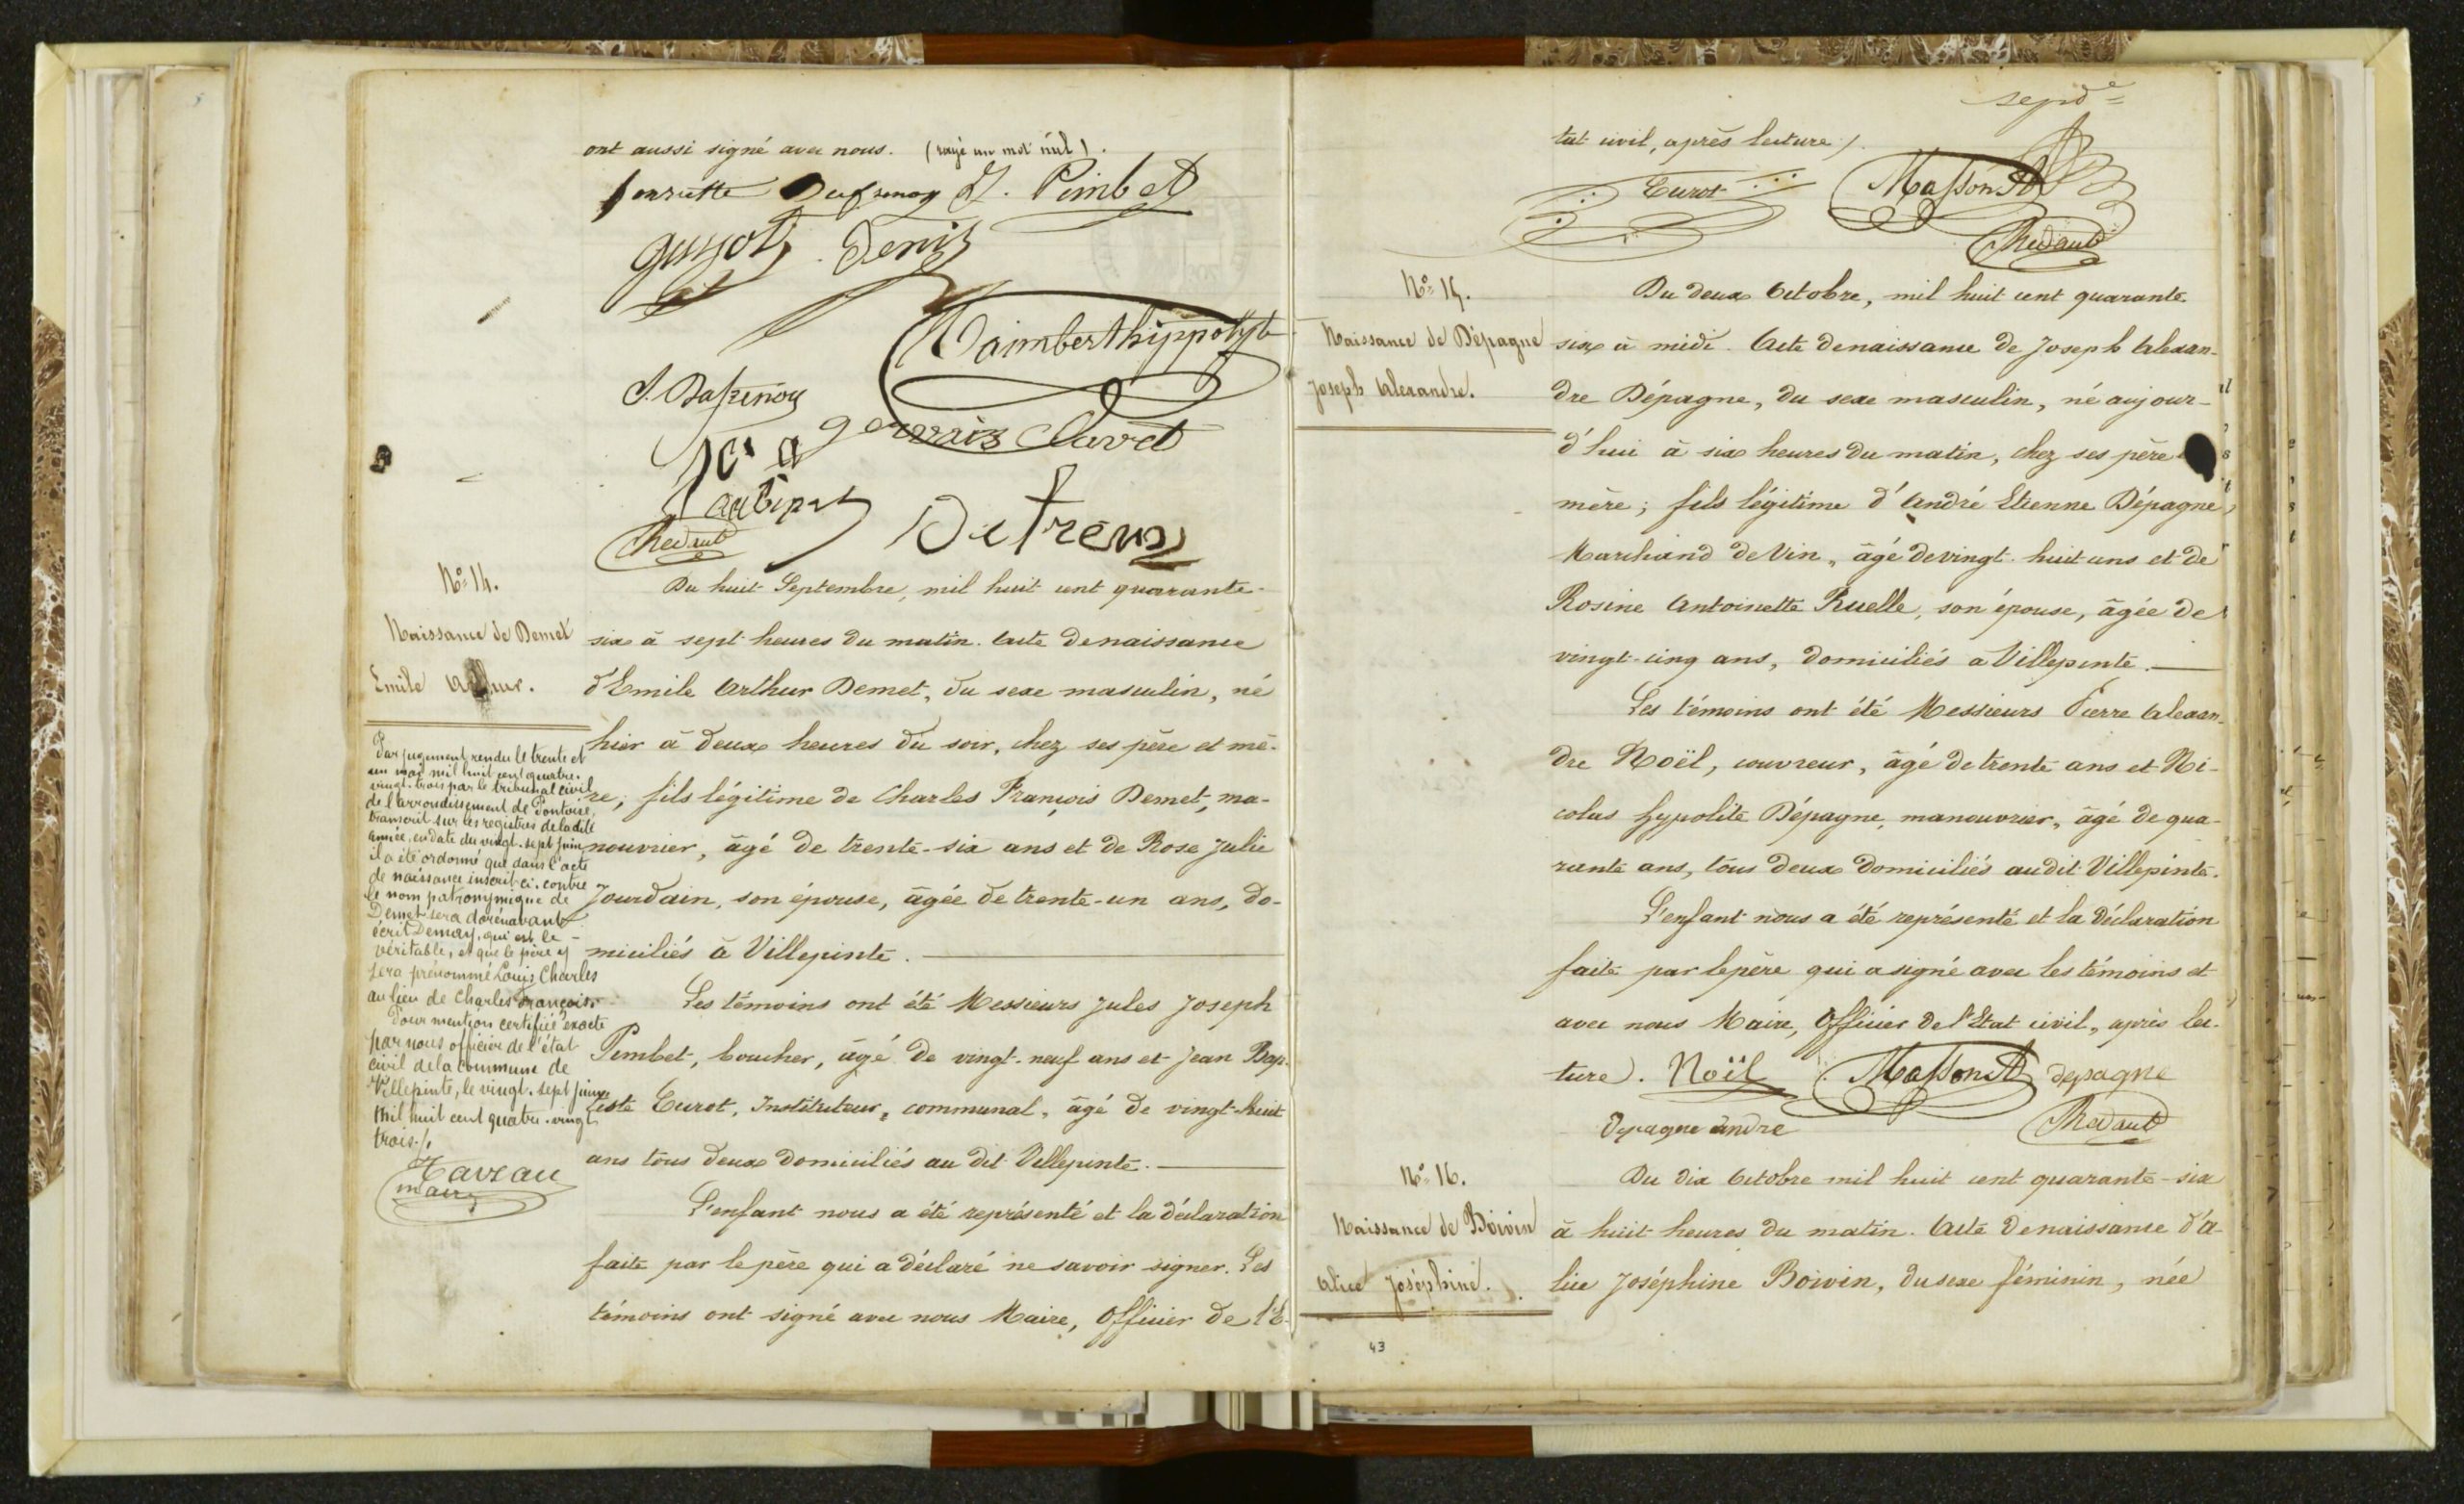 ont aussi signé avec nous. (rayé un mot nul).
henriette Dufrenoy J. Pimbet
guyot Denis
Daimbert hippolyte
J. Dufrénoy
gervais Clavet
Detreux
Redaut
N° 14.
Naissance de Demet
Emile Arthur.
Du huit Septembre, mil huit cent quarante-
six à sept heures du matin. Acte de naissance
d'Emile Arthur Demet, du sexe masculin, né
hier à deux heures du soir, chez ses père et mè-
re; fils légitime de Charles François Demet, ma-
nouvrier, âgé de trente-six ans et de Rose Julie
Jourdain, son épouse, âgée de trente-un ans, do-
miciliés à Villepinte.
Les témoins ont été Messieurs Jules Joseph
Pimbet, boucher, âgé de vingt-neuf ans et Jean Bap-
tiste Curot, Instituteur, communal, âgé de vingt-huit
ans tous deux domiciliés au dit Villepinte.
L'enfant nous a été représenté et la déclaration
faite par le père qui a déclaré ne savoir signer. Les
témoins ont signé avec nous Maire, Officier de l'E-
Par jugement rendu le trente et
un mai mil huit cent quatre-
vingt-trois par le tribunal civil
de l'arrondissement de Pontoise,
transcrit sur les registres de ladite
année, en date du vingt-sept juin
il a été ordonné que dans l'acte
de naissance inscrit ci-contre
le nom patronymique de
Demet sera dorénavant
écrit Demay, qui est le
véritable, et que le père y
sera prénommé Louis Charles
au lieu de Charles François.
Pour mention certifiée exacte
par nous officier de l'état
civil de la commune de
Villepinte, le vingt-sept juin
mil huit cent quatre-vingt
trois./.
Taveau
maire
sept^e
tat civil, après lecture./.
Curot Massonet
Redaut
N° 15.
Naissance de Dépagne
Joseph Alexandre.
Du deux Octobre, mil huit cent quarante-
six à midi. Acte de naissance de Joseph Alexan-
dre Dépagne, du sexe masculin, né aujour-
d'hui à six heures du matin, chez ses père
mère; fils légitime d'André Etienne Dépagne,
Marchand de Vin, âgé de vingt-huit ans et de
Rosine Antoinette Ruelle, son épouse, âgée de
vingt-cinq ans, domiciliés à Villepinte.
Les témoins ont été Messieurs Pierre Alexan-
dre Noël, couvreur, âgé de trente ans et Ni-
colas Hypolite Dépagne, manouvrier, âgé de qua-
rante ans, tous deux domiciliés audit Villepinte.
L'enfant nous a été représenté et la déclaration
faite par le père qui a signé avec les témoins et
avec nous Maire, Officier de l'Etat civil, après lec-
ture. Noël Massonet depagne
Depagne andre Redaut
N° 16.
Naissance de Boivin
Alice Joséphine.
Du dix Octobre mil huit cent quarante-six
à huit heures du matin. Acte de naissance d'A-
lice Joséphine Boivin, du sexe féminin, née
43